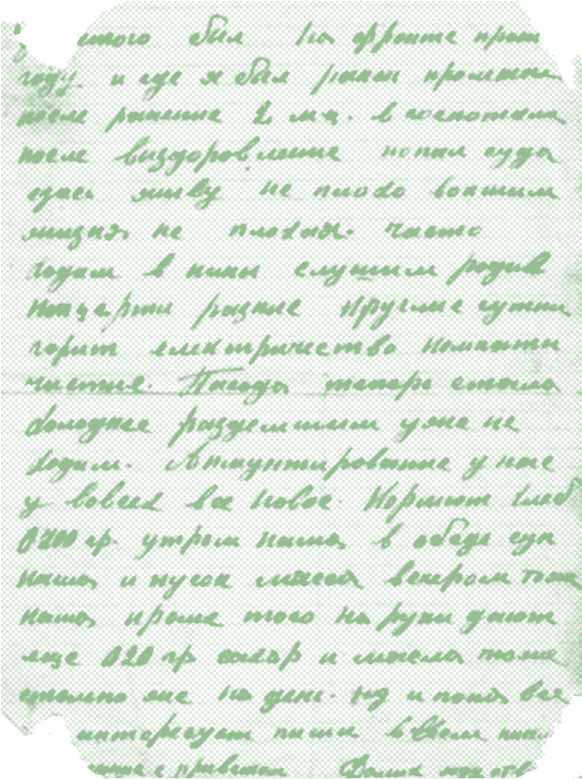 этого был На фронте прош
году. и где я был ранен
после ранение 2 мц. в госпитали
после выздоровление попал суда
здесь живу не плохо вопшим
жизня не плохая. часто
ходим в кины слушаим радио
концерти разние Круглие сутки
горит електричество комнати
чистие. Пагода тапарь стала
холоднее раздемшими уже не
ходим. Апмунтирование у нас
у вовсех все новое. Кормют хлеб
0700 гр. утром каша, в обеде суп
каша и кусок мяса вечером тоже
каша, кроме того На руки дают
еще 020 гр сахар и масла тоже
столько же На день. Ну и пока все
интересует пиши
с приветом